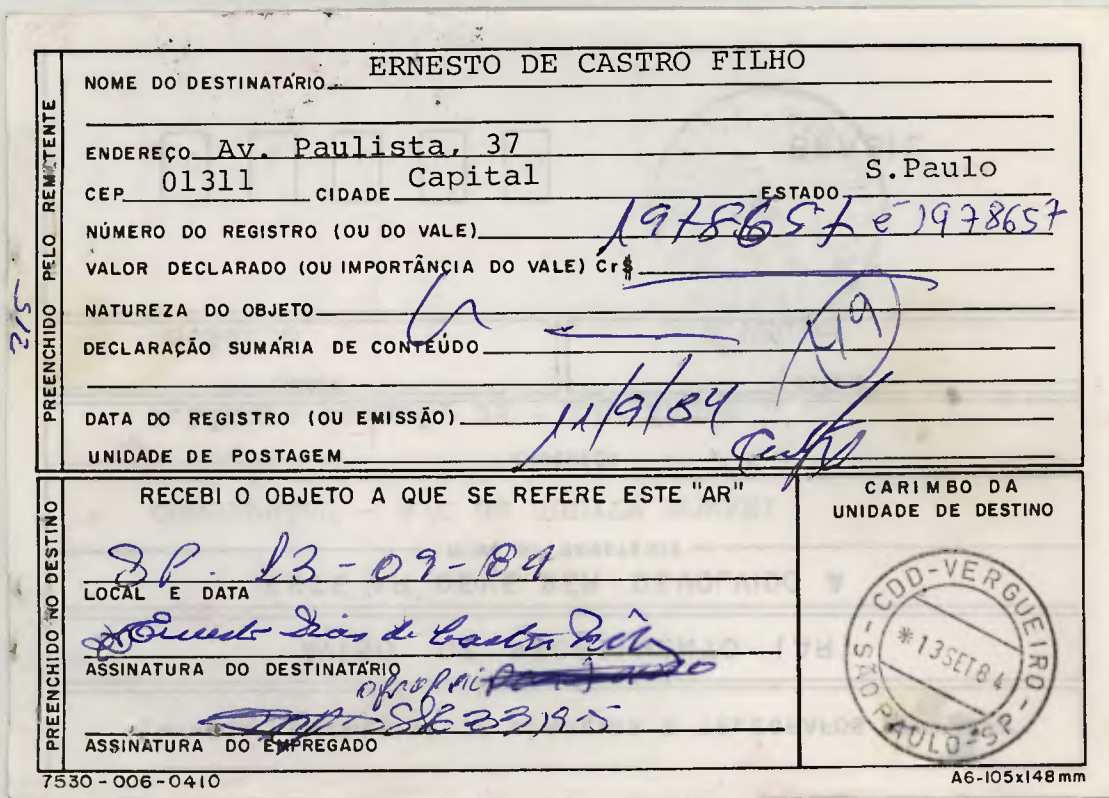 PREENCHIDO PELO REMETENTE
215
NOME DO DESTINATÁRIO ERNESTO DE CASTRO FILHO
ENDEREÇO Av. Paulista, 37
CEP 01311 CIDADE Capital ESTADO S.Paulo
NÚMERO DO REGISTRO (OU DO VALE) 1978657 e 1978657
VALOR DECLARADO (OU IMPORTÂNCIA DO VALE) Cr$
NATUREZA DO OBJETO
19
DECLARAÇÃO SUMÁRIA DE CONTEÚDO
DATA DO REGISTRO (OU EMISSÃO) 11/9/84
UNIDADE DE POSTAGEM
PREENCHIDO NO DESTINO
RECEBI O OBJETO A QUE SE REFERE ESTE "AR"
SP. 13-09-84
LOCAL E DATA
Ernesto Dias de Castro Filho
ASSINATURA DO DESTINATÁRIO
ASSINATURA DO EMPREGADO
CARIMBO DA
UNIDADE DE DESTINO
CDD-VERGUEIRO
*13SET84
SÃO PAULO-SP
7530-006-0410
A6-105x148mm